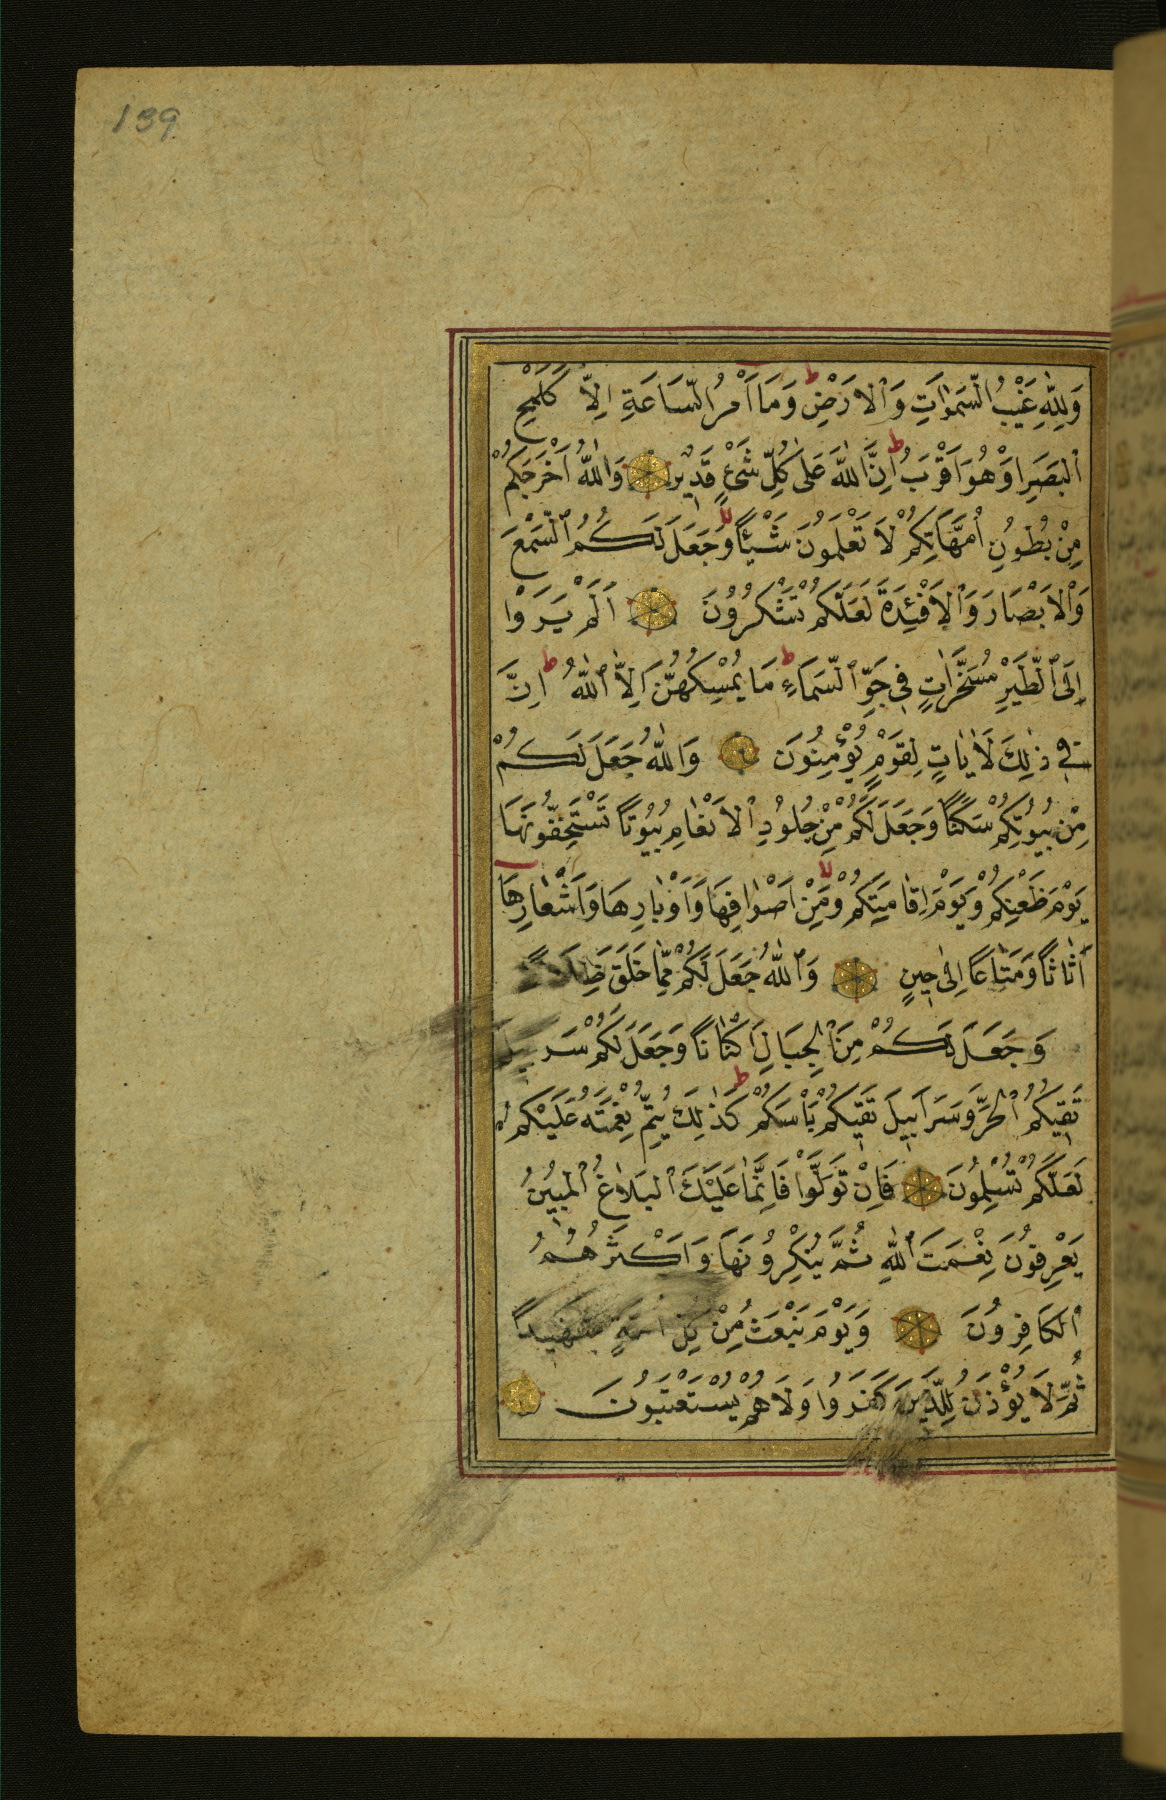 139
وَلِلّٰهِ غَيْبُ السَّمٰوَاتِ وَالْاَرْضِ ط وَمَا اَمْرُ السَّاعَةِ اِلَّا كَلَمْحِ
الْبَصَرِ اَوْ هُوَ اَقْرَبُ ط اِنَّ اللّٰهَ عَلٰى كُلِّ شَىْءٍ قَدِيْرٌ وَاللّٰهُ اَخْرَجَكُمْ
مِنْ بُطُونِ اُمَّهَاتِكُمْ لَا تَعْلَمُونَ شَيْـًٔا لا وَجَعَلَ لَكُمُ السَّمْعَ
وَالْاَبْصَارَ وَالْاَفْئِدَةَ لَعَلَّكُمْ تَشْكُرُونَ اَلَمْ يَرَوْا
اِلَى الطَّيْرِ مُسَخَّرَاتٍ فِى جَوِّ السَّمَاءِ ط مَا يُمْسِكُهُنَّ اِلَّا اللّٰهُ ط اِنَّ
فِى ذٰلِكَ لَاٰيَاتٍ لِقَوْمٍ يُؤْمِنُونَ وَاللّٰهُ جَعَلَ لَكُمْ
مِنْ بُيُوتِكُمْ سَكَنًا وَجَعَلَ لَكُمْ مِنْ جُلُودِ الْاَنْعَامِ بُيُوتًا تَسْتَخِفُّونَهَا
يَوْمَ ظَعْنِكُمْ وَيَوْمَ اِقَامَتِكُمْ لا وَمِنْ اَصْوَافِهَا وَاَوْبَارِهَا وَاَشْعَارِهَا
اَثَاثًا وَمَتَاعًا اِلٰى حِينٍ وَاللّٰهُ جَعَلَ لَكُمْ مِمَّا خَلَقَ ظِلَالًا
وَجَعَلَ لَكُمْ مِنَ الْجِبَالِ اَكْنَانًا وَجَعَلَ لَكُمْ سَرَابِيلَ
تَقِيكُمُ الْحَرَّ وَسَرَابِيلَ تَقِيكُمْ بَاْسَكُمْ ط كَذٰلِكَ يُتِمُّ نِعْمَتَهُ عَلَيْكُمْ
لَعَلَّكُمْ تُسْلِمُونَ فَاِنْ تَوَلَّوْا فَاِنَّمَا عَلَيْكَ الْبَلَاغُ الْمُبِينُ
يَعْرِفُونَ نِعْمَتَ اللّٰهِ ثُمَّ يُنْكِرُونَهَا وَاَكْثَرُهُمُ
الْكَافِرُونَ وَيَوْمَ نَبْعَثُ مِنْ كُلِّ اُمَّةٍ شَهِيدًا
ثُمَّ لَا يُؤْذَنُ لِلَّذِينَ كَفَرُوا وَلَا هُمْ يُسْتَعْتَبُونَ